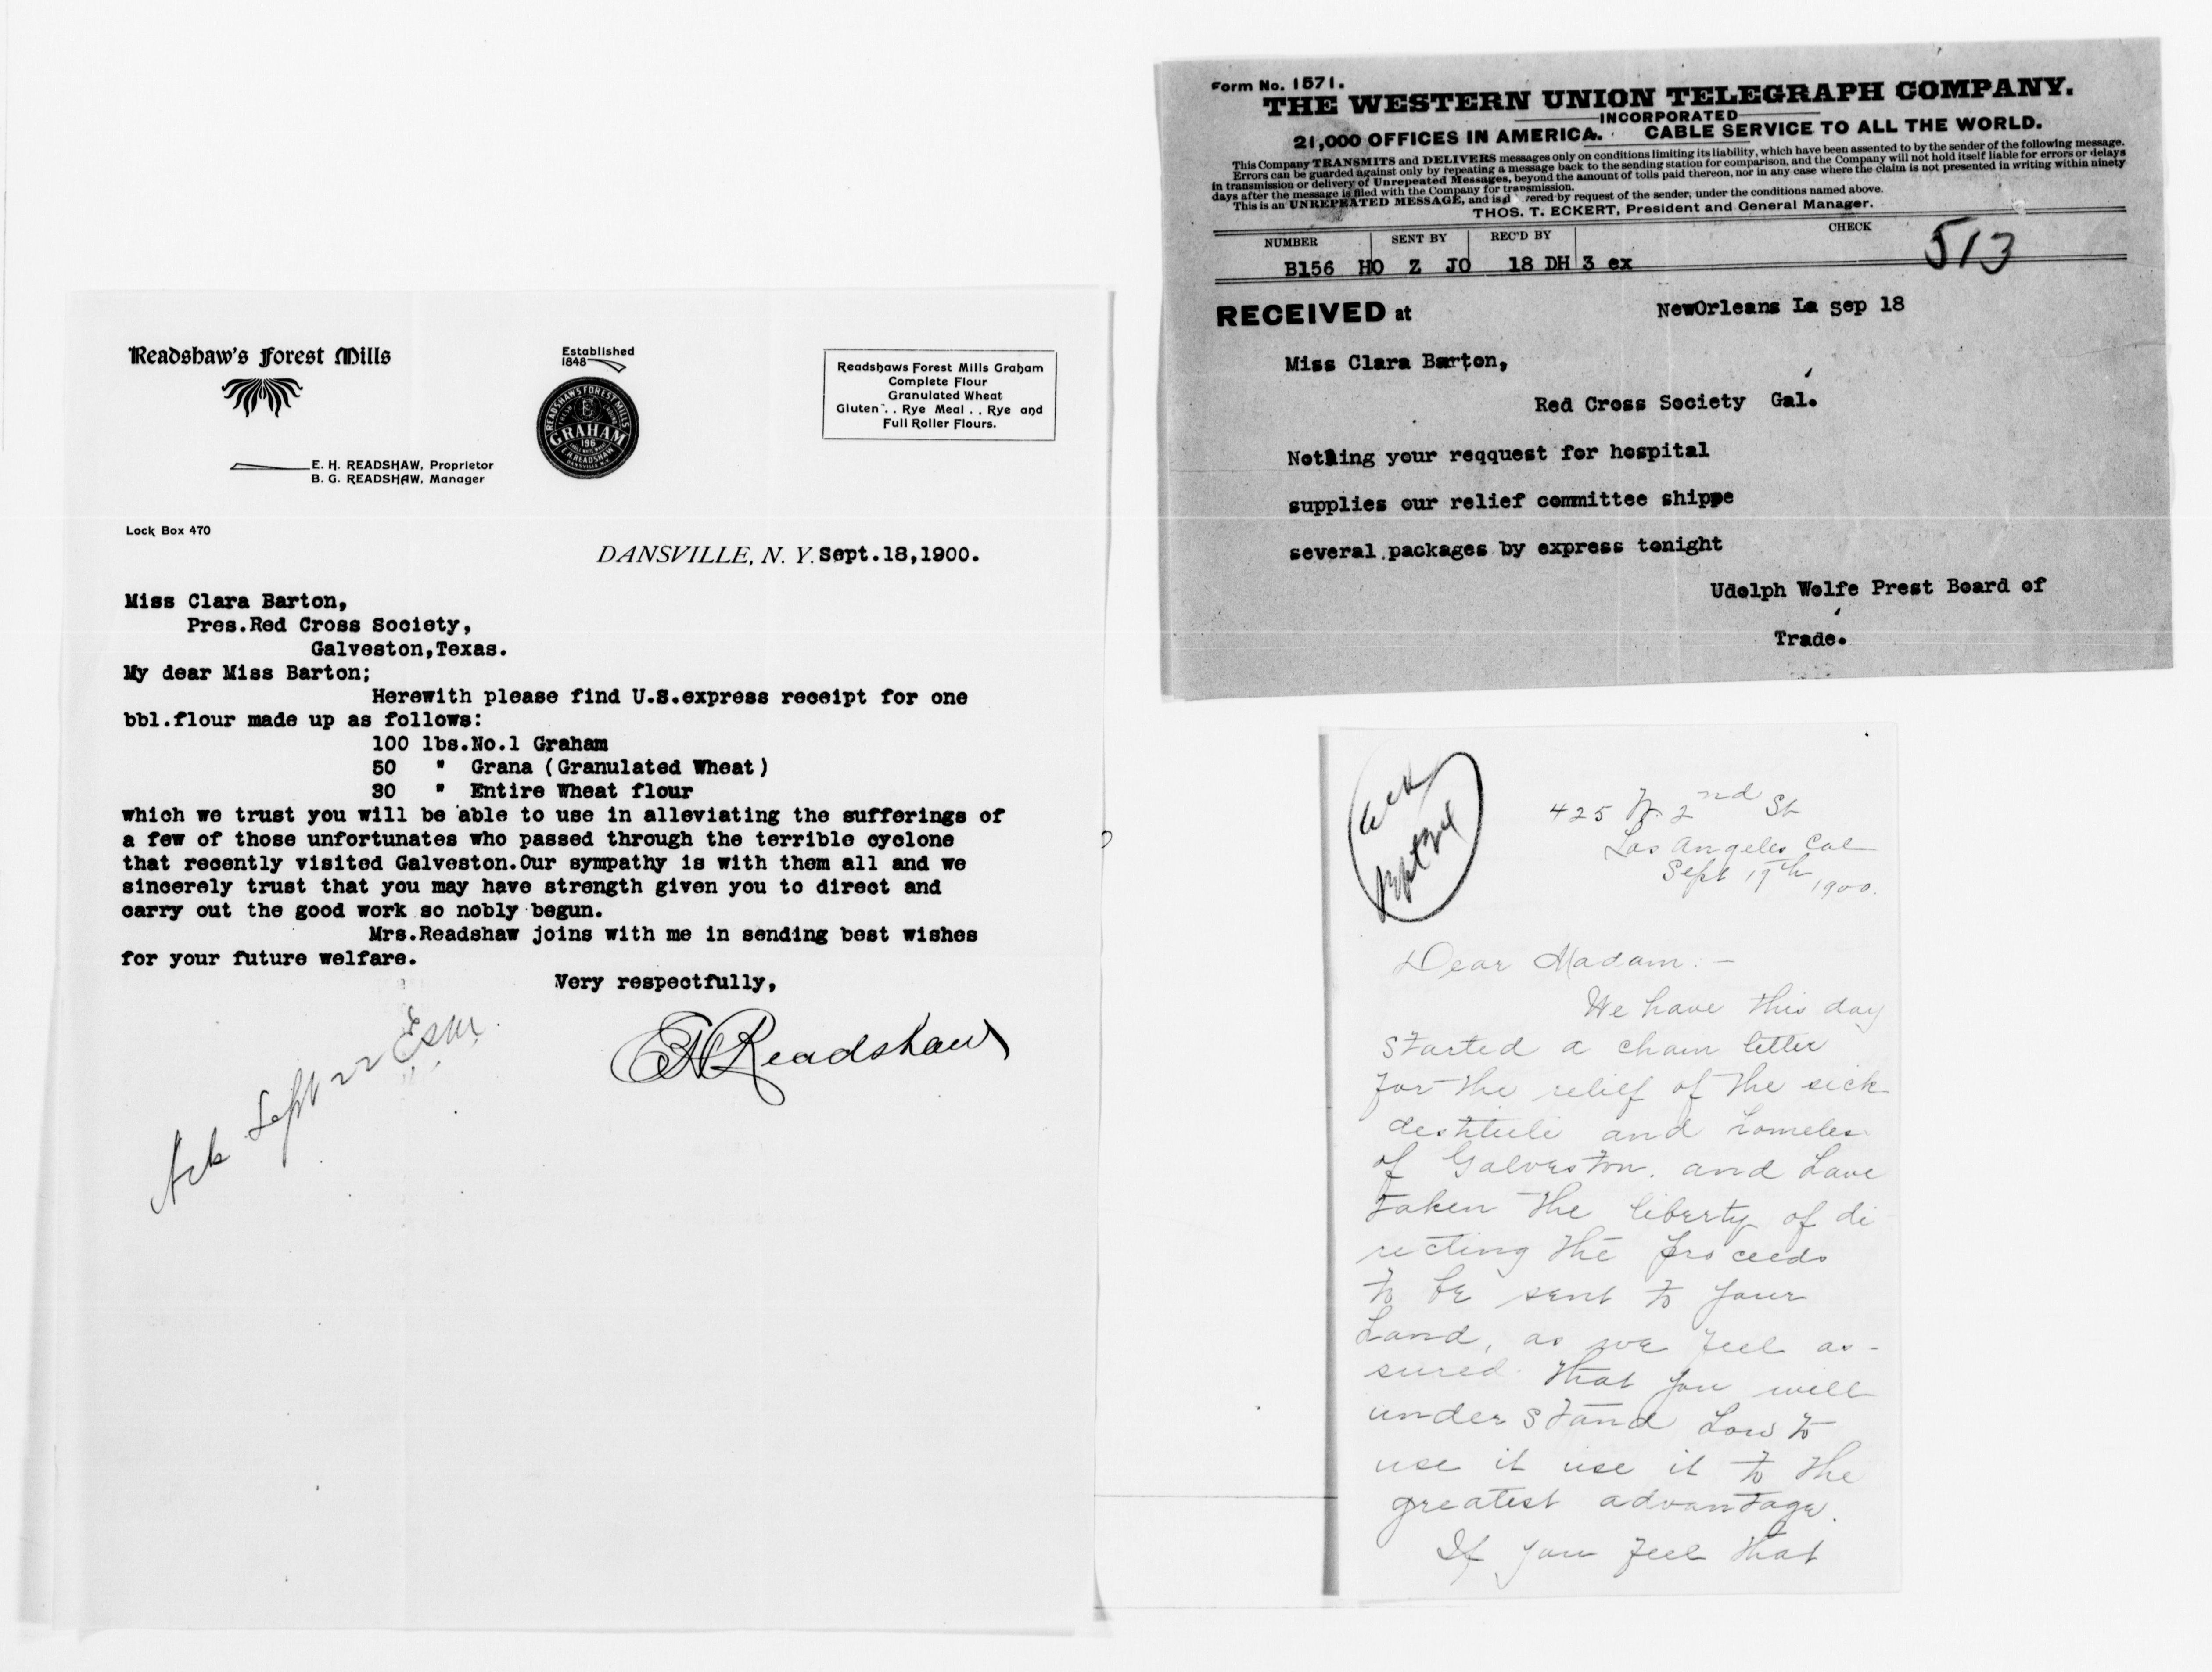 Readshaw's Forest Mills
Established
1848
READSHAW'S FOREST MILLS
GRAHAM
196
E.H. READSHAW
DANSVILLE N.Y.
Readshaws Forest Mills Graham
Complete Flour
Granulated Wheat
Gluten . . Rye Meal . . Rye and
Full Roller Flours.
E. H. READSHAW, Proprietor
B. G. READSHAW, Manager
Lock Box 470
DANSVILLE, N. Y. Sept.18,1900.
Miss Clara Barton,
Pres.Red Cross Society,
Galveston,Texas.
My dear Miss Barton;
Herewith please find U.S.express receipt for one
bbl.flour made up as follows:
100 lbs.No.1 Graham
50 " Grana (Granulated Wheat)
30 " Entire Wheat flour
which we trust you will be able to use in alleviating the sufferings of
a few of those unfortunates who passed through the terrible cyclone
that recently visited Galveston.Our sympathy is with them all and we
sincerely trust that you may have strength given you to direct and
carry out the good work so nobly begun.
Mrs.Readshaw joins with me in sending best wishes
for your future welfare.
Very respectfully,
EH Readshaw
Ack Sept 22
Form No. 1571.
THE WESTERN UNION TELEGRAPH COMPANY.
INCORPORATED
21,000 OFFICES IN AMERICA. CABLE SERVICE TO ALL THE WORLD.
This Company TRANSMITS and DELIVERS messages only on conditions limiting its liability, which have been assented to by the sender of the following message.
Errors can be guarded against only by repeating a message back to the sending station for comparison, and the Company will not hold itself liable for errors or delays
in transmission or delivery of Unrepeated Messages, beyond the amount of tolls paid thereon, nor in any case where the claim is not presented in writing within ninety
days after the message is filed with the Company for transmission.
This is an UNREPEATED MESSAGE, and is d vered by request of the sender, under the conditions named above.
THOS. T. ECKERT, President and General Manager.
NUMBER SENT BY REC'D BY CHECK
B156 HO Z JO 18 DH 3 ex 513
RECEIVED at NewOrleans La Sep 18
Miss Clara Barton,
Red Cross Society Gal.
Nothing your reqquest for hospital
supplies our relief committee shippe
several packages by express tonight
Udolph Wolfe Prest Board of
Trade.
Ack
Sept 24
425 W. 2nd St
Los Angeles Cal
Sept 19th 1900.
Dear Madam: -
We have this day
started a chain letter
for the relief of the sick
destitute and homeless
of Galveston. and have
taken the liberty of di
recting the proceeds
to be sent to your
hand, as we feel as-
sured that you will
understand how to
use it use it to the
greatest advantage.
If you feel that